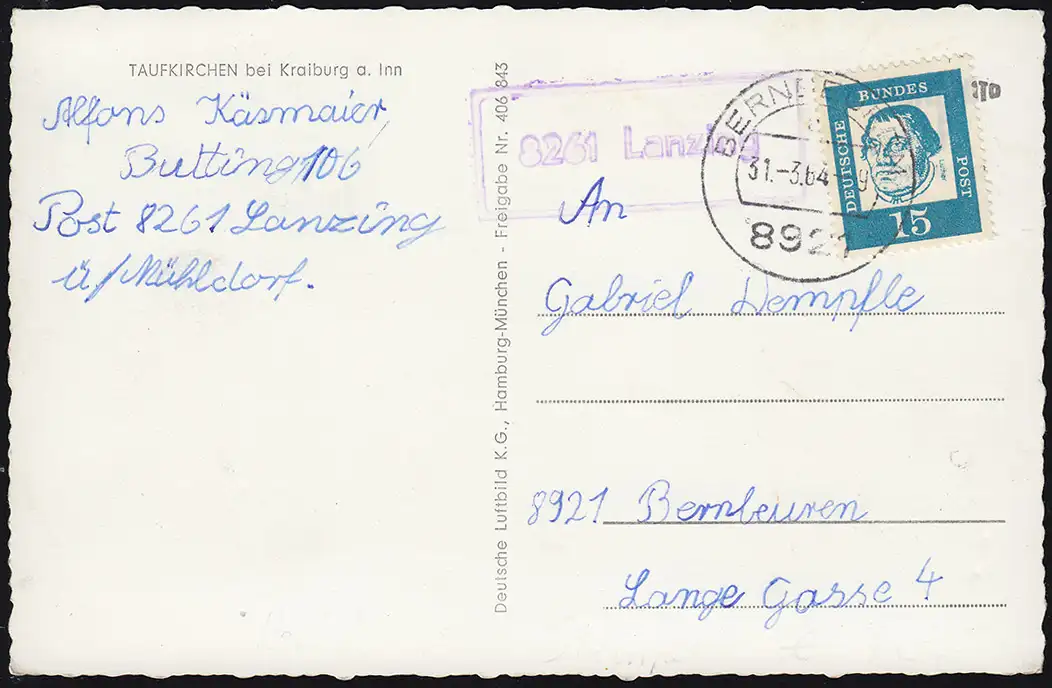 TAUFKIRCHEN bei Kraiburg a. Inn
Alfons Käsmaier
Butting 106
Post 8261 Lanzing
ü/Mühldorf.
Deutsche Luftbild K.G., Hamburg-München - Freigabe Nr. 406 843
8261 Lanzing
31.-3.64
8921
DEUTSCHE
BUNDES
POST
15
An
Gabriel Dempfle
8921 Bernbeuren
Lange Gasse 4